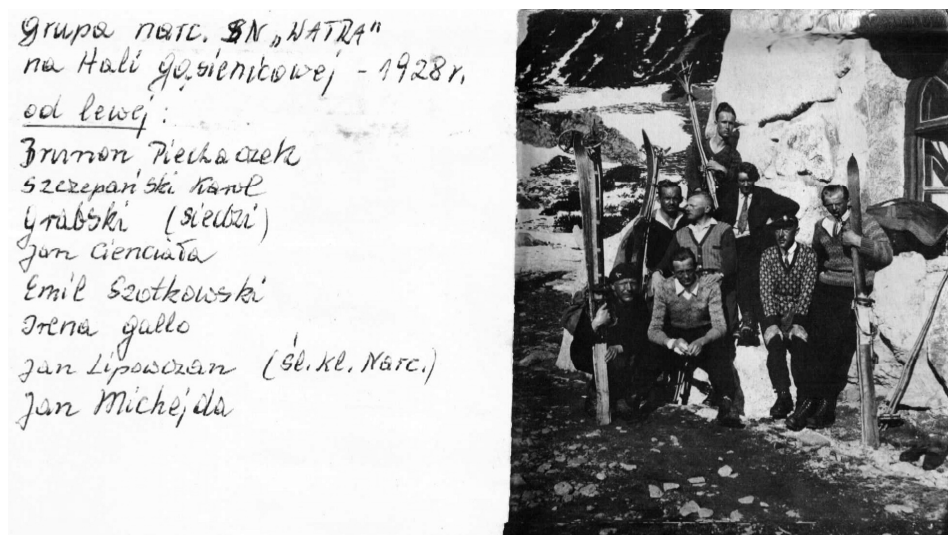 Grupa narc. SN „WATRA”
na Hali Gąsienicowej - 1928 r.
od lewej:
Brunon Piechaczek
Szczepański Karol
Grabski (siedzi)
Jan Cienciała
Emil Szotkowski
Irena Gallo
Jan Lipowczan (śl. kl. Narc.)
Jan Michejda